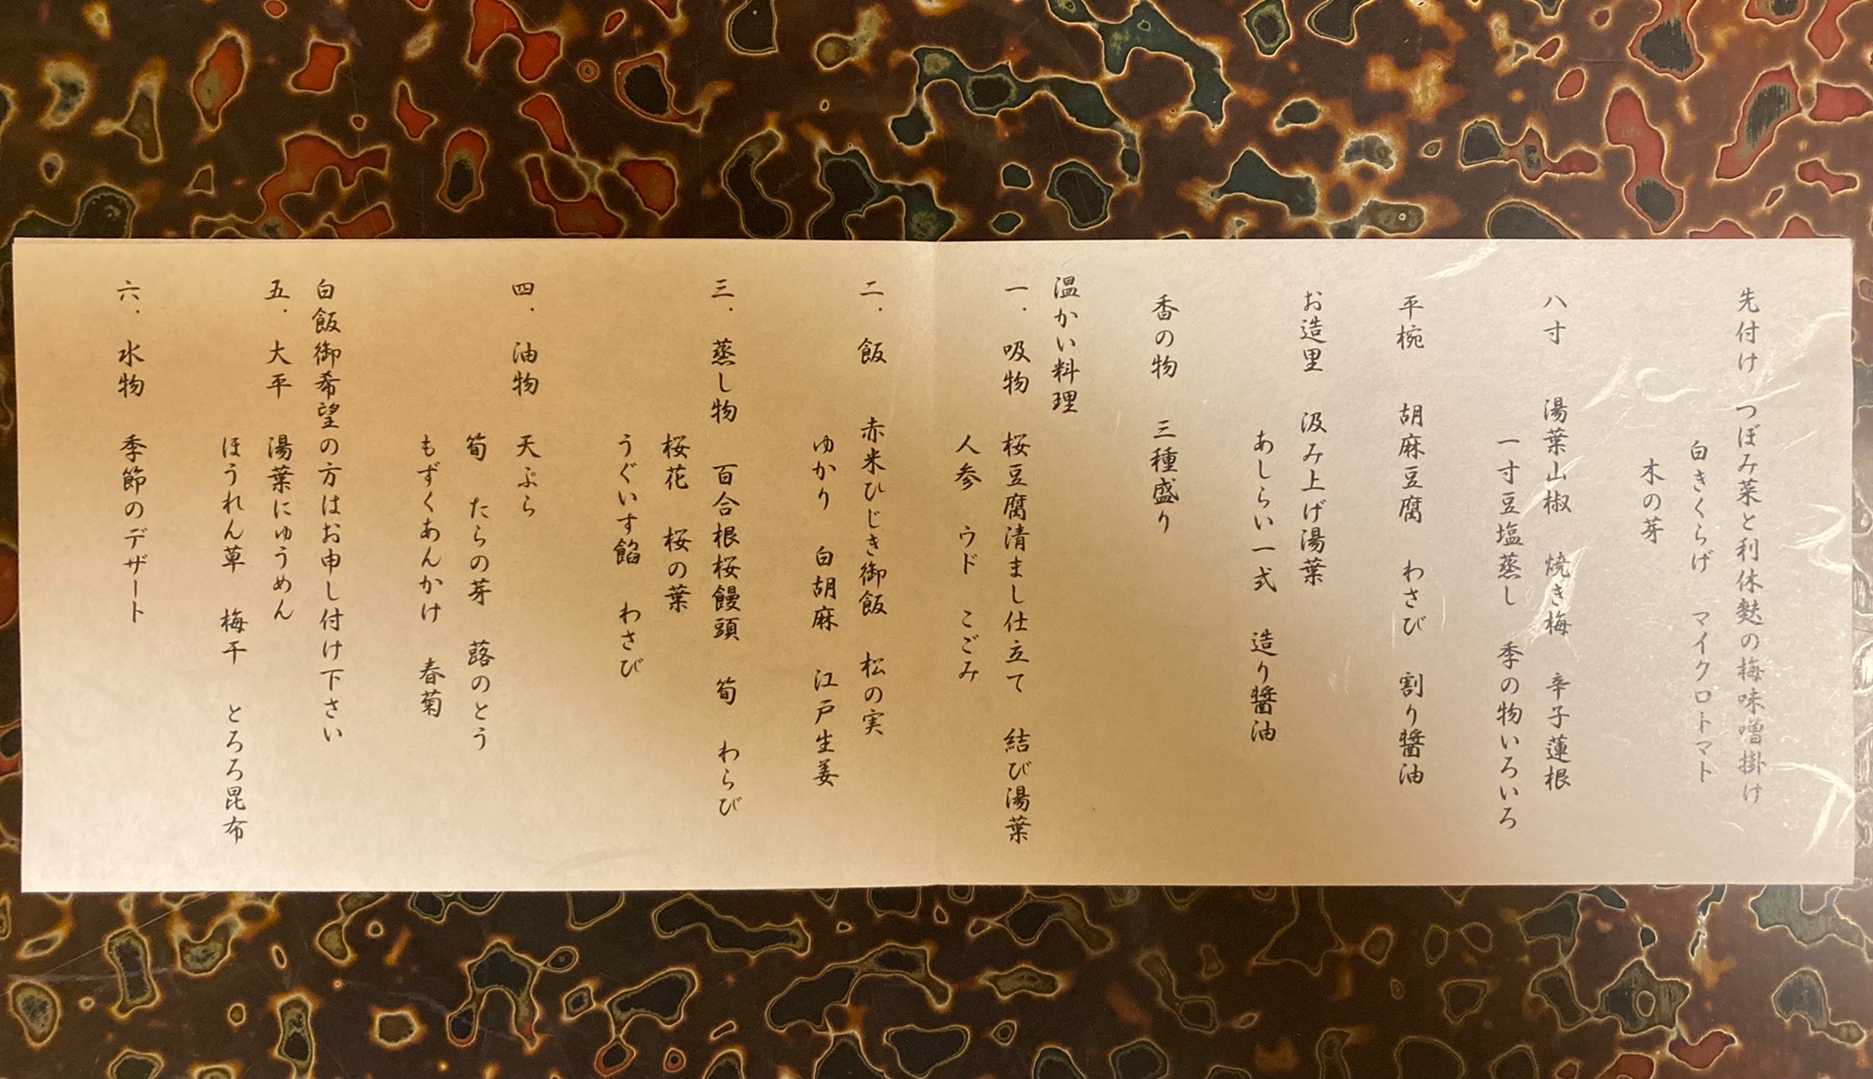 先付け つぼみ菜と利休麩の梅味噌掛け
白きくらげ マイクロトマト
木の芽
八寸 湯葉山椒 焼き梅 辛子蓮根
一寸豆塩蒸し 季の物いろいろ
平椀 胡麻豆腐 わさび 割り醤油
お造里 汲み上げ湯葉
あしらい一式 造り醤油
香の物 三種盛り
温かい料理
一.吸物 桜豆腐清まし仕立て 結び湯葉
人参 ウド こごみ
二.飯 赤米ひじき御飯 松の実
ゆかり 白胡麻 江戸生姜
三.蒸し物 百合根桜饅頭 筍 わらび
桜花 桜の葉
うぐいす餡 わさび
四.油物 天ぷら
筍 たらの芽 蕗のとう
もずくあんかけ 春菊
白飯御希望の方はお申し付け下さい
五.大平 湯葉にゅうめん
ほうれん草 梅干 とろろ昆布
六.水物 季節のデザート